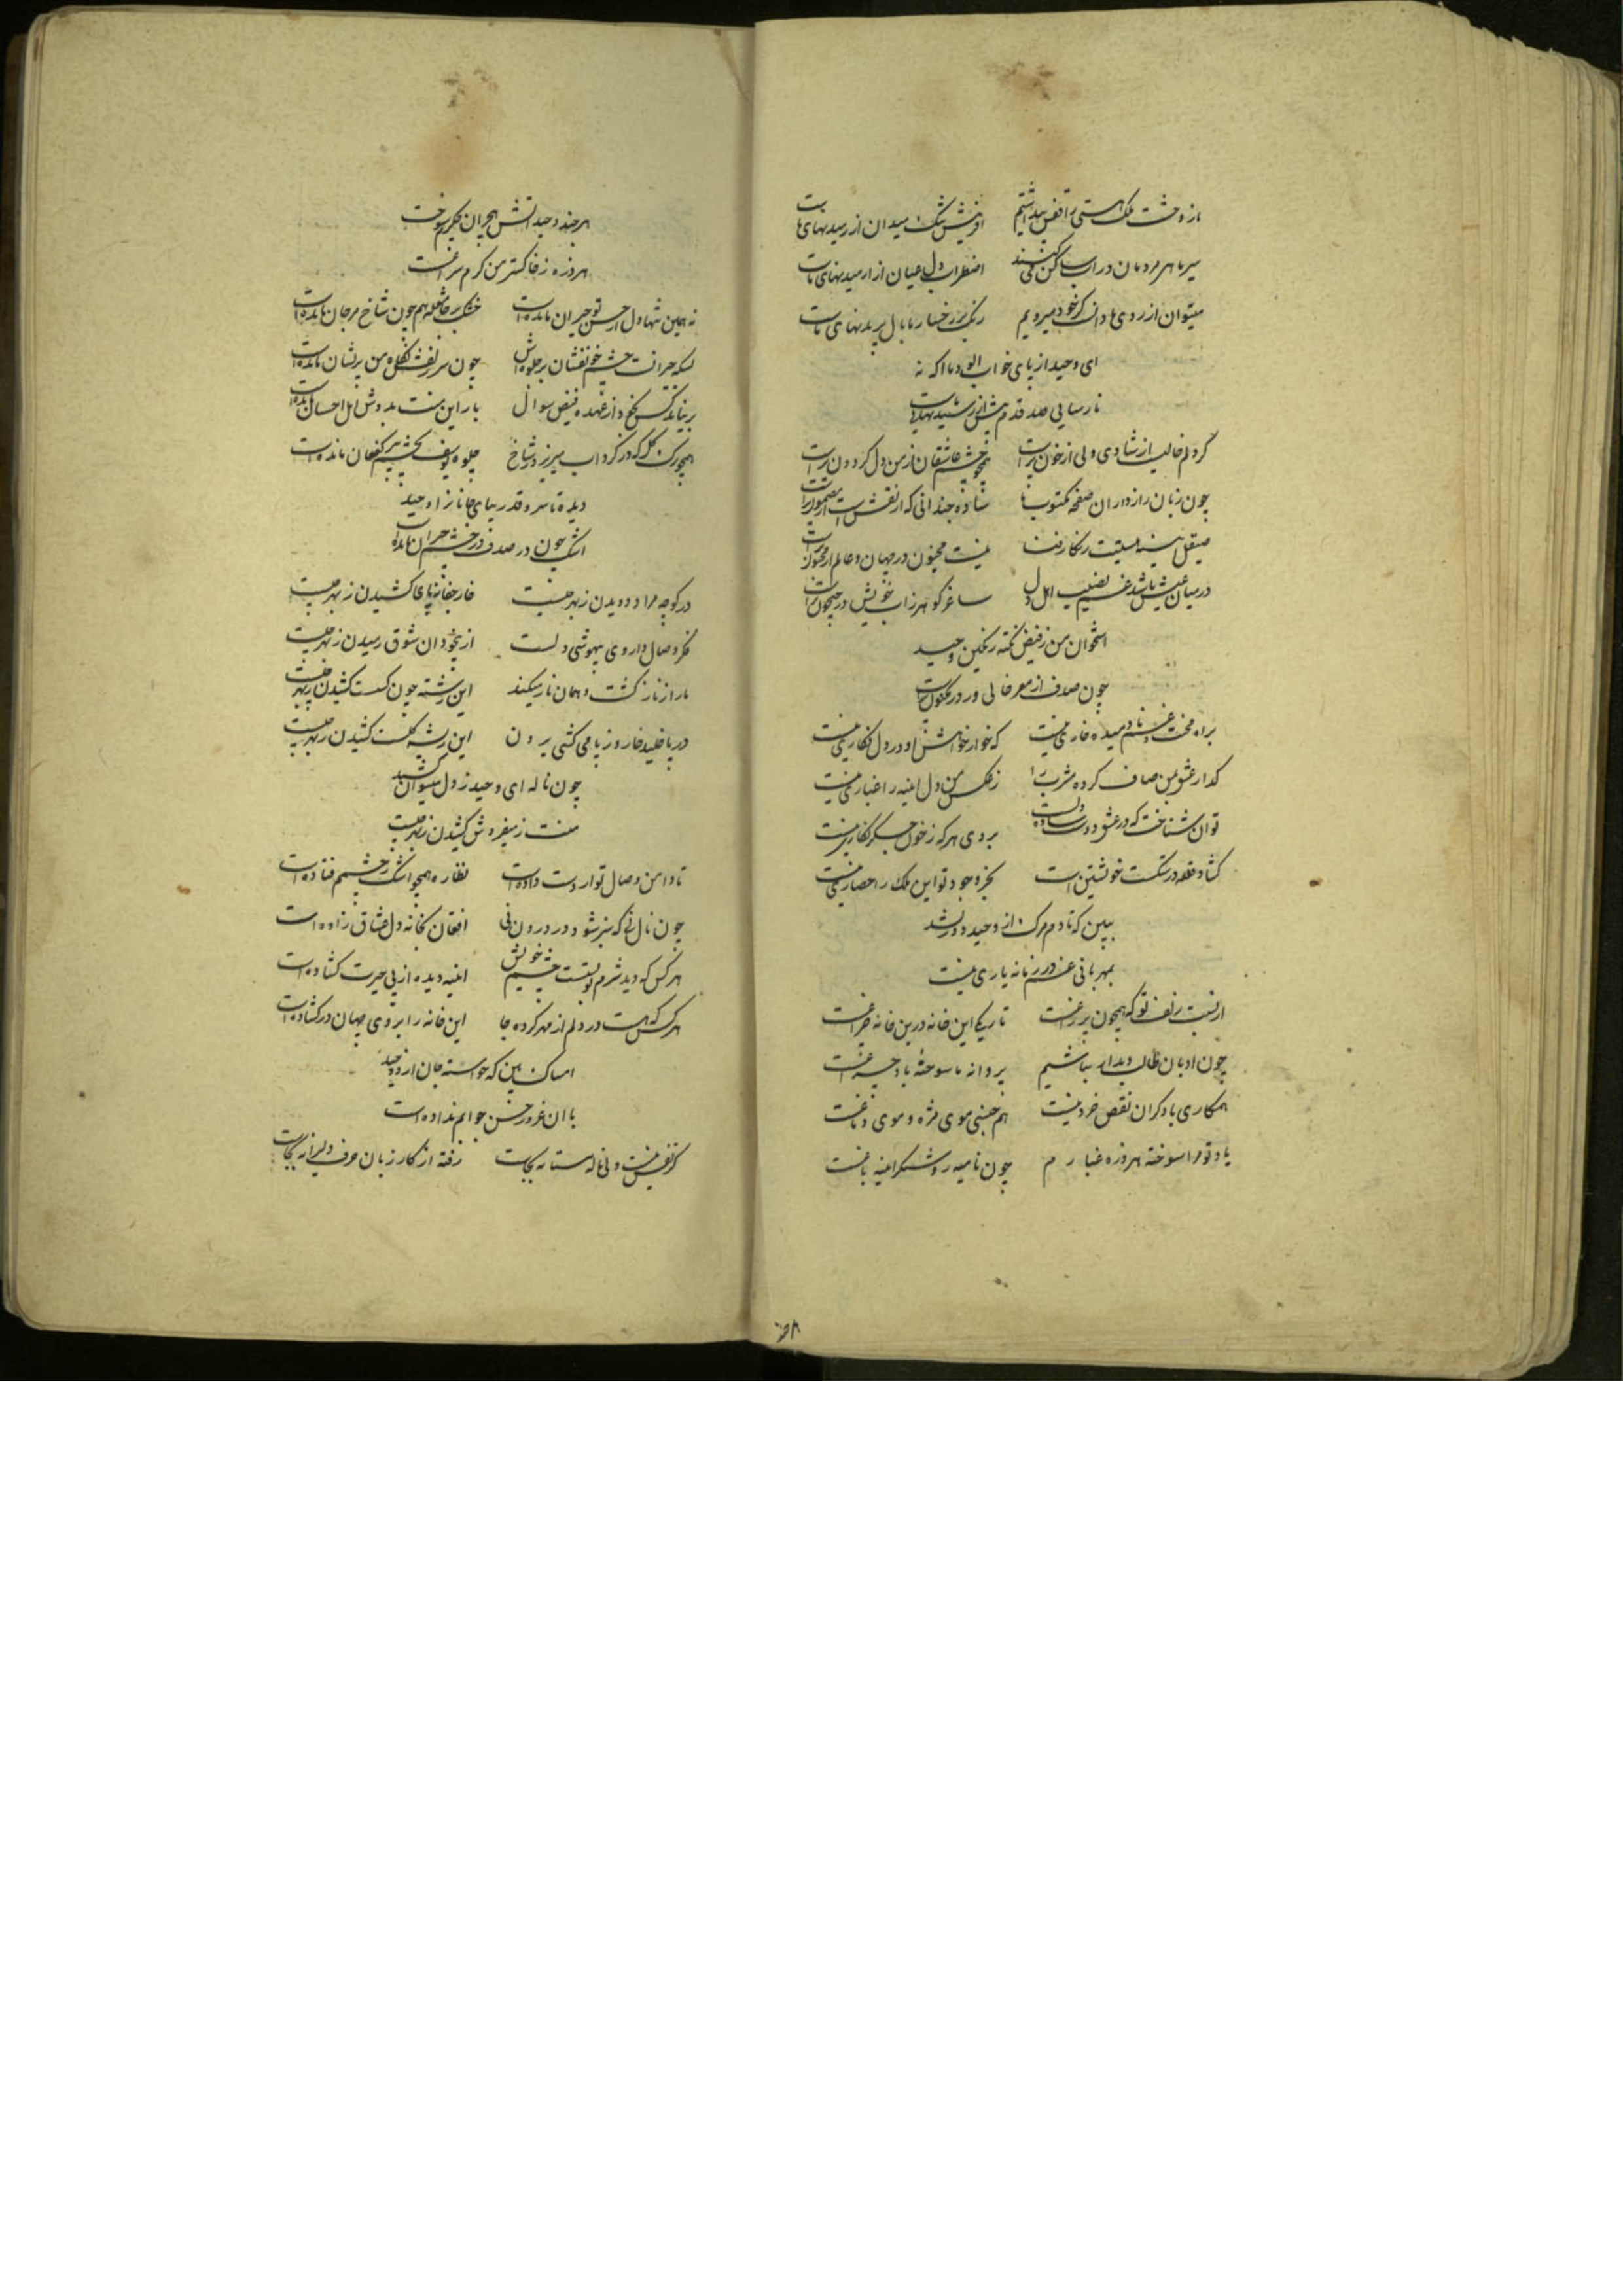 ما ز وحشت ملک هستی را قفس پنداشتیم افرینش تنک میدان از رمیدنهای ماست
سیر ما هر مردمان در اب ساکن میکنند اضطراب دل عیان از ارمیدنهای ماست
میتوان از روی ما دانست کز خود میرویم رنک بر رخسار ما بال پریدنهای ماست
ای وحید از پای خواب الود ما اکه نه
نارسایی صد قدم پیش از رسیدنهای ماست
کر دلم خالیست از شادی ولی از خون پرست همچو چشم عاشقان از من دل کردون پرست
چون زبان رازداران صفحه مکتوب ما ساده چندانی که از نقش است از مضمون پرست
صیقل ایینه نیست زنکار رفت نیست مجنون در جهان و عالم از مجنون پرست
در میان عیش باشد غم نصیب اهل دل ساغر کوهر ز اب خویش در جیحون پرست
استخوان من ز فیض نکته رنکین وحید
چون صدف از مغز خالی وز در مکنون پرست
براه محنت و غم نادمیده خاری نیست که خار خواهش او در دل فکاری نیست
کدار عشق من صاف کرده مشرب را ز عکس من دل ایینه را غباری نیست
توان شناخت که در عشق دوست ساده دلست بروی هر که ز خون جکر نکاری نیست
کشاد قلعه در شکست خویشتن است بجز وجود تو این ملک را حصاری نیست
ببین که تا دم مرک از وحید دور نشد
بمهربانی غم در زمانه یاری نیست
از نسبت زلف تو که همچون پر زاغست تاریکی این خانه درین خانه چراغست
چون ادبان طالب دیدار نباشیم پروانه ما سوخته باد چراغست
همکاری با دکران نقص خرد نیست هم جنبی موی مژه و موی دماغست
یاد تو مرا سوخته هر ذره غبارم چون نامیه روشنکر ایینه باغست
هر چند وحید اتش هجران جکرم سوخت
هر ذره ز خاکستر من کرم سراغست
نه همین تنها دل از حسن تو حیران مانده است خشک بر جا شعله هم چون شاخ مرجان مانده است
بسکه حیرانست چشم خونفشان بر جلوه اش چون سر زلفش نکاه من پریشان مانده است
بر نیاید کس بخود از عهده فیض سوال بار این منت بدوش اهل احسان مانده است
همچو برک کل که در کرداب میریزد ز شاخ جلوه یوسف بچشم پیر کنعان مانده است
دیده تا سرو قد زیبای جانان را وحید
اشک چون در صدف در چشم حیران مانده است
در کوچه مراد دویدن ز بهر چیست خار جفا ز پای کشیدن ز بهر چیست
فکر وصال داروی بیهوشی دلست از بیخودان شوق رسیدن ز بهر چیست
مار از ناز کشت و همان ناز میکند این رشته چون کسست کشیدن ز بهر چیست
در پا خلید خار و ز پا می کشی برون این ریشه کسست کشیدن ز بهر چیست
چون ناله ای وحید ز دل میتوان کشید
منت ز میفروش کشیدن ز بهر چیست
تا دامن وصال تو از دست داده است نظاره همچو اشک ز چشمم فتاده است
چون نال نی که سبز شود در درون نی افغان بخانه دل عشاق زاده است
هر کس که دید شرم تو بستست چشم خویش ایینه دیده از پی حیرت کشاده است
هر کس که هست در دلم از مهر کرده جا این خانه را بروی جهان در کشاده است
امساک بین که خواسته جان از وحید
با ان غرور حسن جوابم نداده است
کر نفس نیست ولی ناله مستانه بجاست رفته از کار زبان حرف دلیرانه بجاست